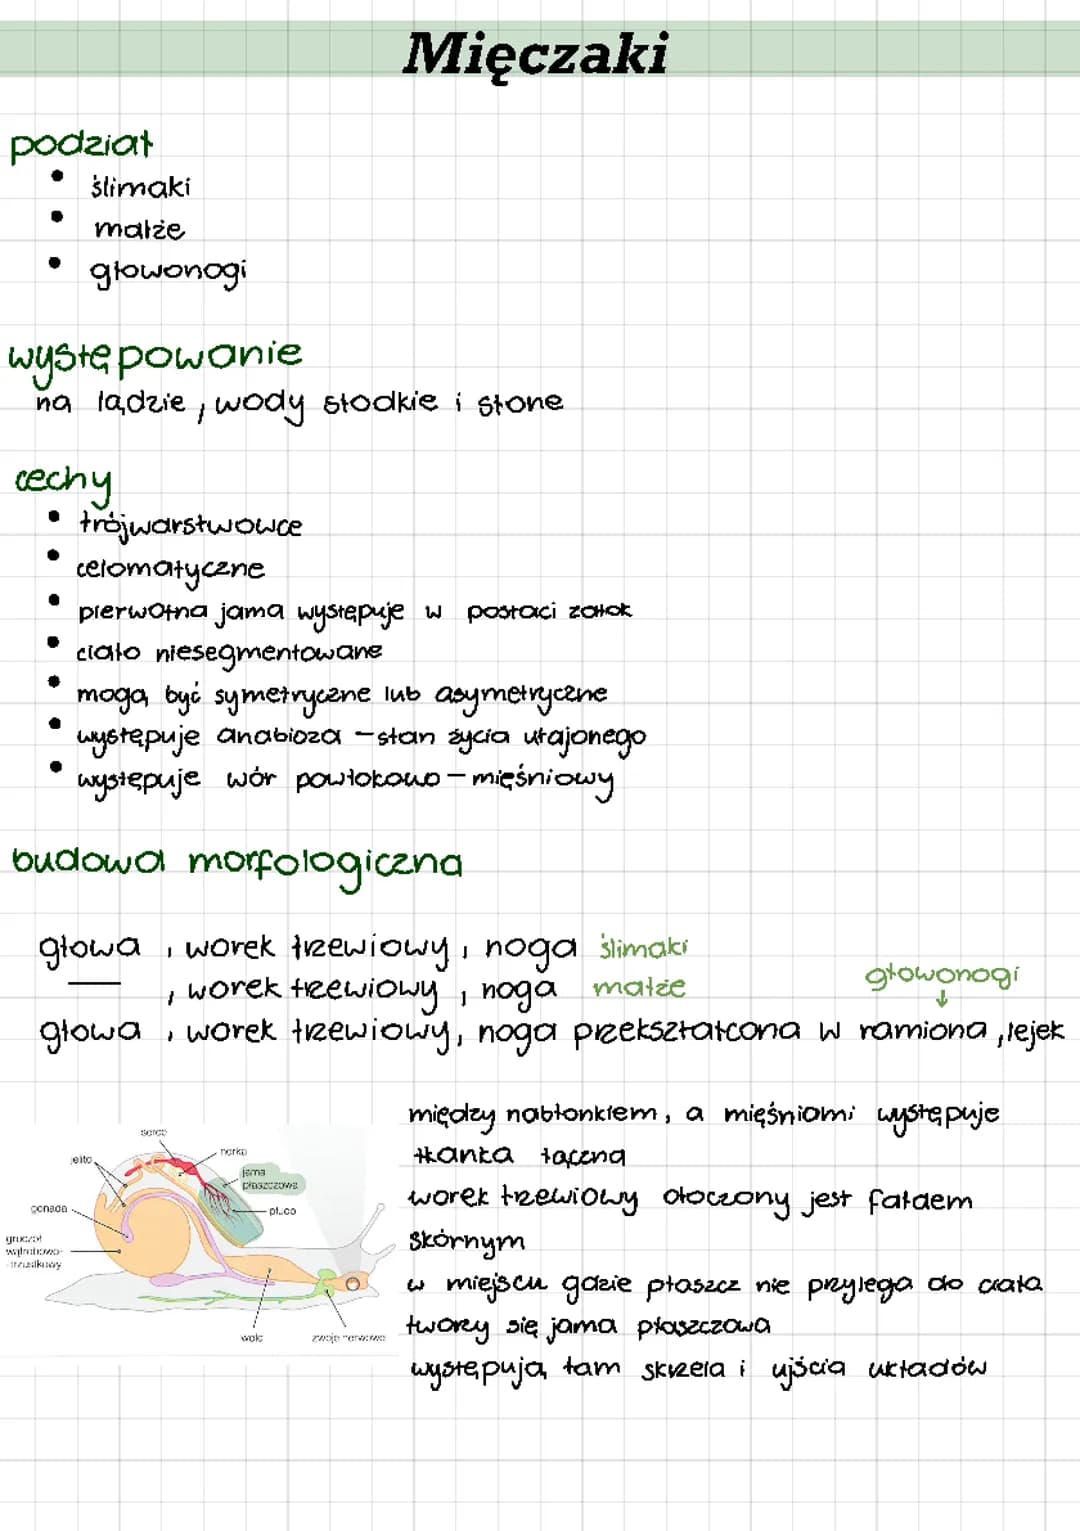 Mięczaki
podział
• ślimaki
• małże
• głowonogi
występowanie
na lądzie, wody słodkie i słone
cechy
• trójwarstwowce
• celomatyczne
• pierwotna jama występuje w postaci zatok
• ciało niesegmentowane
• mogą być symetryczne lub asymetryczne
• występuje anabioza - stan życia utajonego
• występuje wór powłokowo - mięśniowy
budowa morfologiczna
głowa, worek trzewiowy, noga ślimaki
—, worek trzewiowy, noga małże
głowonogi
↓
głowa, worek trzewiowy, noga przekształcona w ramiona, lejek
między nabłonkiem, a mięśniami występuje
tkanka łączna
worek trzewiowy otoczony jest fałdem
skórnym
w miejscu gdzie płaszcz nie przylega do ciała
tworzy się jama płaszczowa
występują tam skrzela i ujścia układów
serce
nerka
jelito
jama
płaszczowa
gonada
płuco
gruczoł
wątrobowo-
-trzustkowy
wole
zwoje nerwowe